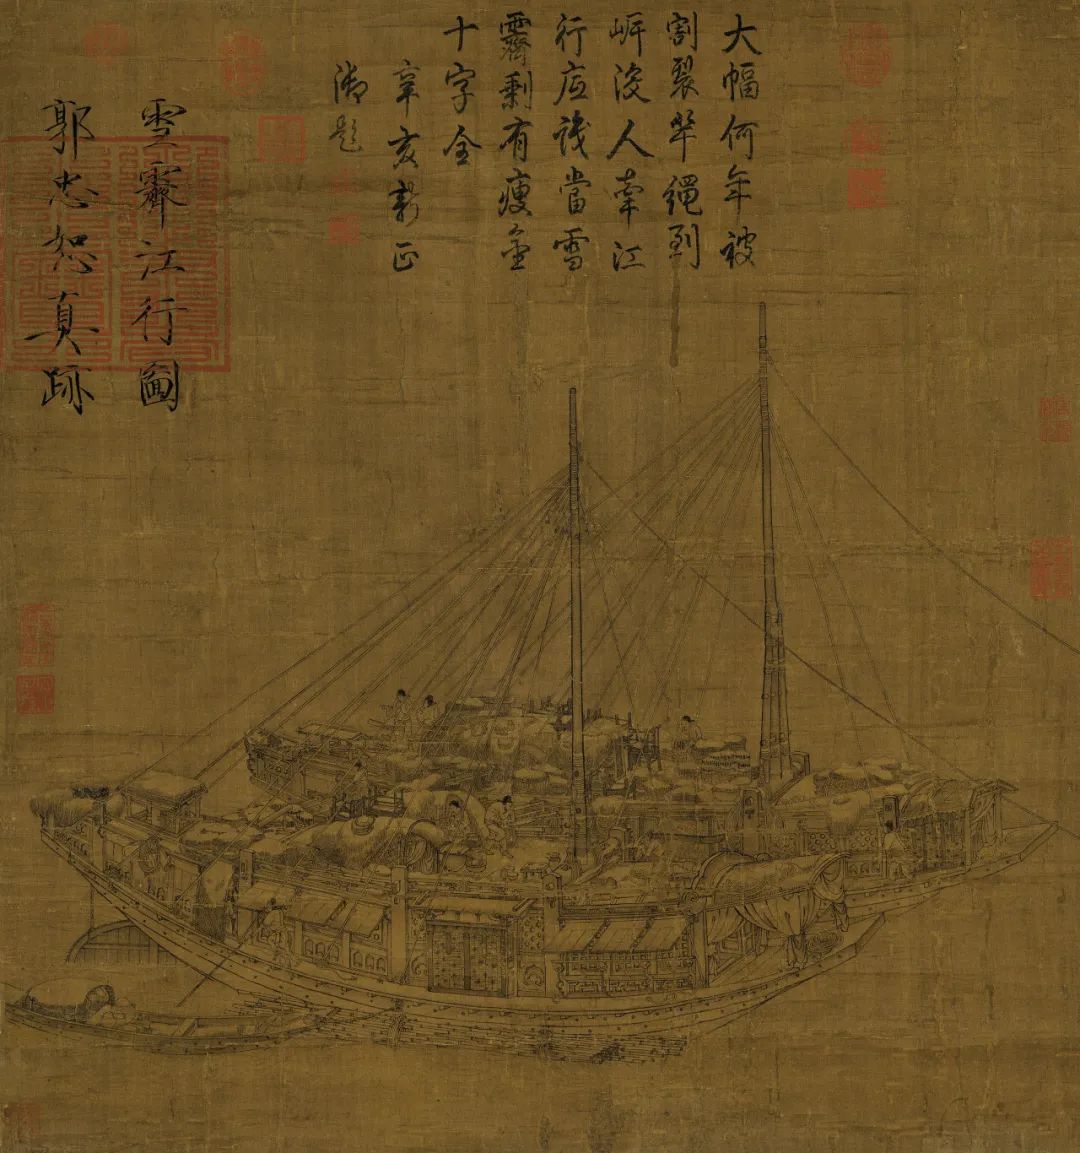 大幅何年被
割裂竿繩到
岸没人牽江
行应識當雪
霽剩有瘦金
十字全
辛亥新正
御題
雪霽江行圖
郭忠恕真跡